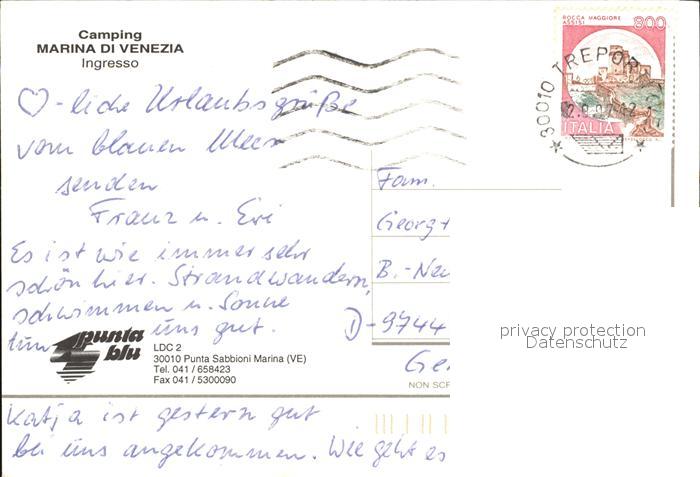 Camping
MARINA DI VENEZIA
Ingresso
ROCCA MAGGIORE
ASSISI
800
30010 TREPOR
ITALIA
♡-liche Urlaubsgrüße
vom blauen Meer
senden
Franz u. Evi
Es ist wie immer sehr
schön hier. Strandwandern,
schwimmen u. Sonne
tun uns gut.
Fam.
Georg
B.-Neu
D-9744
Ge
NON SCR
punta
blu
LDC 2
30010 Punta Sabbioni Marina (VE)
Tel. 041 / 658423
Fax 041 / 5300090
privacy protection
Datenschutz
Katja ist gestern gut
bei uns angekommen. Wie geht es